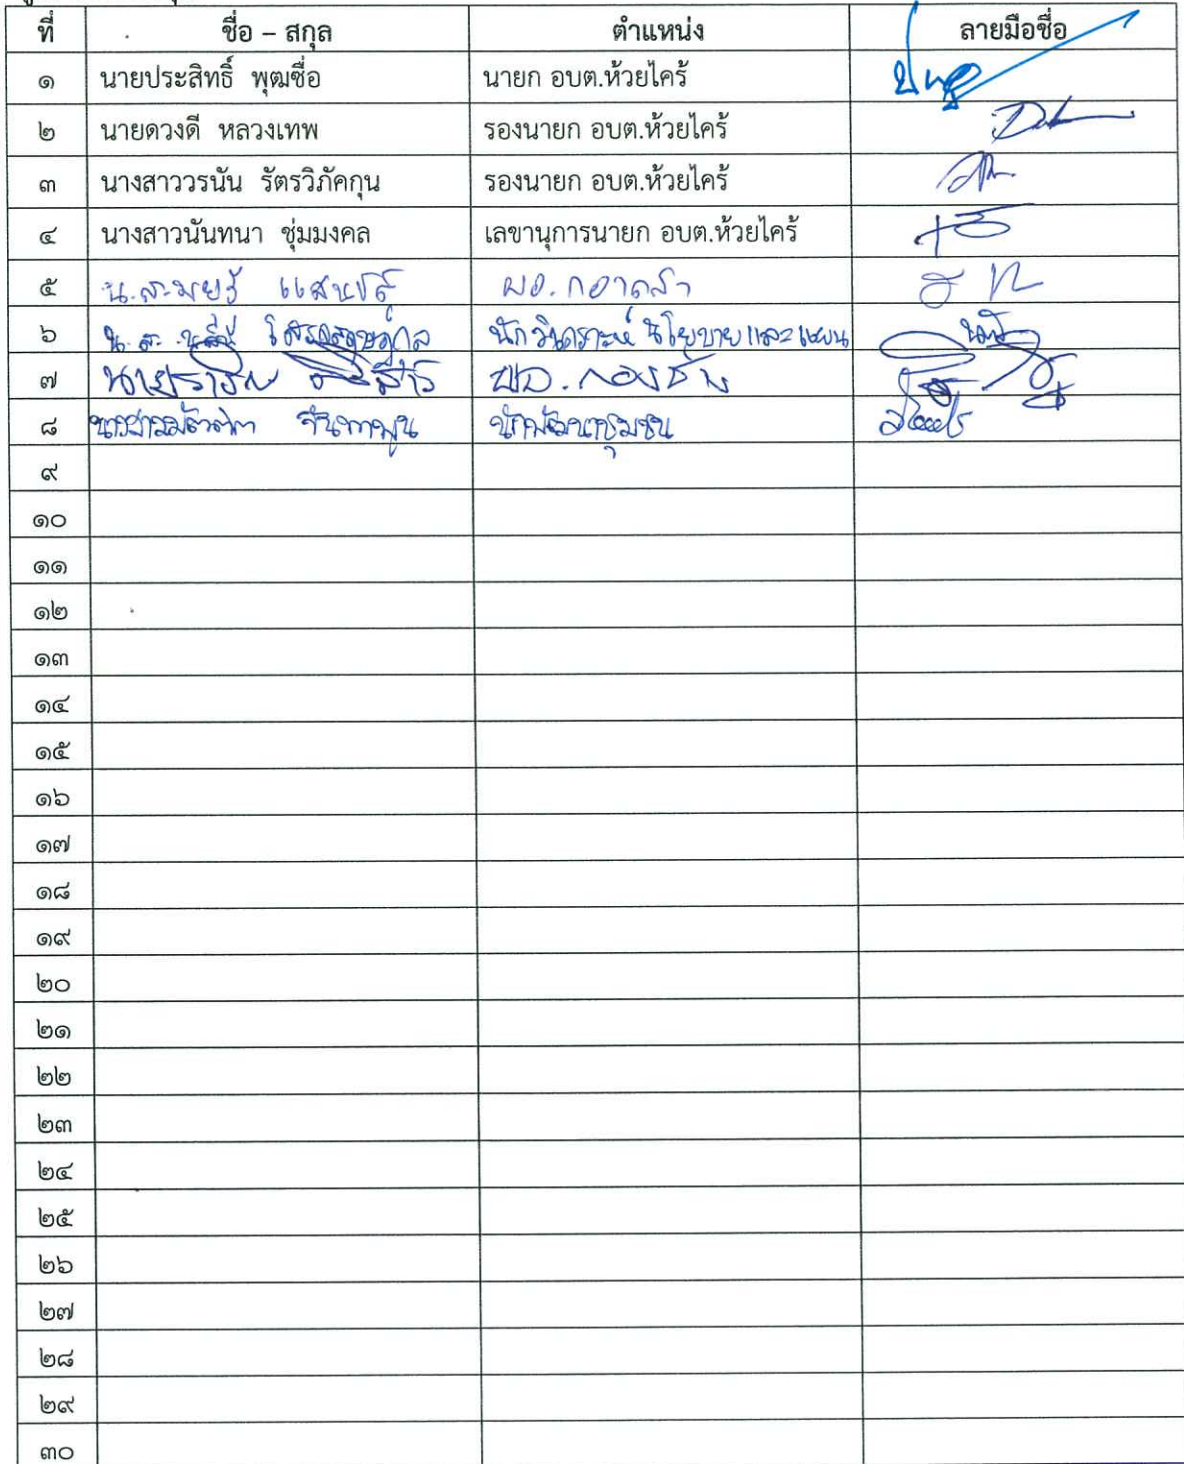 ที่ ชื่อ – สกุล ตำแหน่ง ลายมือชื่อ
๑ นายประสิทธิ์ พุฒชื่อ นายก อบต.ห้วยไคร้
๒ นายดวงดี หลวงเทพ รองนายก อบต.ห้วยไคร้
๓ นางสาววรนัน รัตรวิภัคกุน รองนายก อบต.ห้วยไคร้
๔ นางสาวนันทนา ชุ่มมงคล เลขานุการนายก อบต.ห้วยไคร้
๕ น.ส.
๖ น.ส. นักวิเคราะห์นโยบายและแผน
๗ นาย ผอ.กองช่าง
๘ นางสาว นักพัฒนาชุมชน
๙
๑๐
๑๑
๑๒
๑๓
๑๔
๑๕
๑๖
๑๗
๑๘
๑๙
๒๐
๒๑
๒๒
๒๓
๒๔
๒๕
๒๖
๒๗
๒๘
๒๙
๓๐